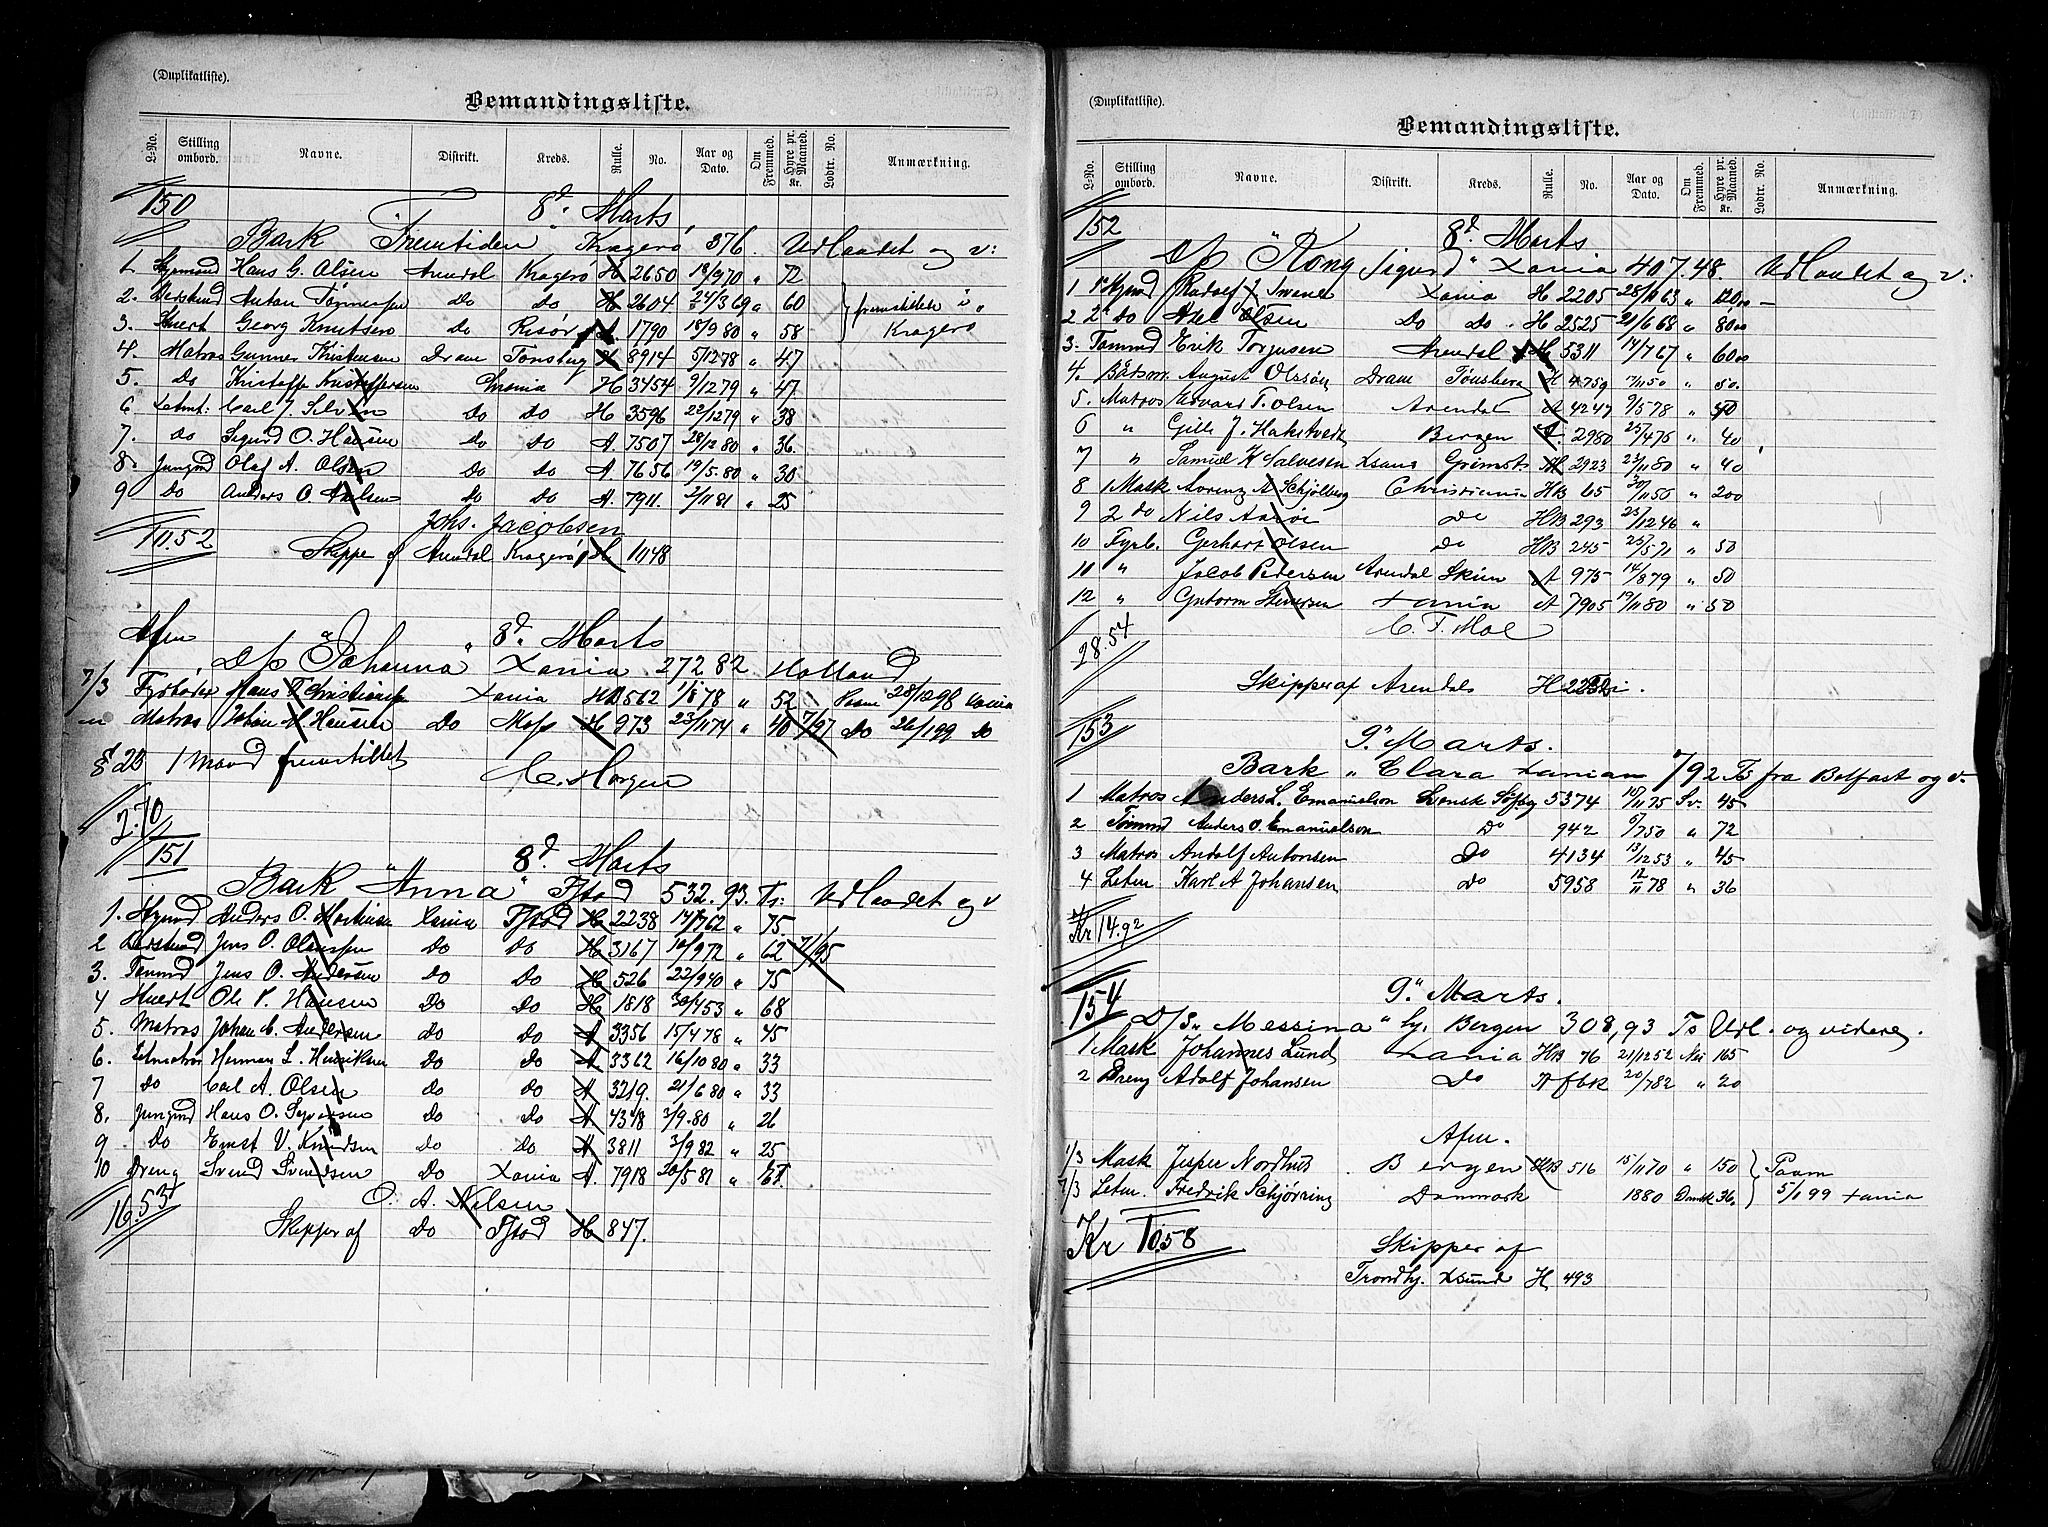 (Duplikatliste).
Bemandingsliste.
L-No. Stilling ombord. Navne. Distrikt. Kreds. Rulle. No. Aar og Dato. Om Fremmed. Hyre pr. Maaned. Kr. Lodtr. No. Anmærkning.
150 8d. Marts
Bark "Fremtiden" Kragerø 376. Udlandet og v:
1. Styrmand Hans G. Olsen Arendal Kragerø H 2650 18/9 70 " 72
2. Anton Do Do H 2604 24/3 69 " 60 fremstillede i
3. Georg Knutsen Do Risør A. 1790 18/9 80 " 58 Kragerø
4. Matros Gunner Kristensen Dram Tønsberg H 8914 5/12 78 " 47
5. Do Kristoffersen Xania H 3454 9/12 79 " 47
6 Letmt: Carl J. Do Do H 3596 22/12 79 " 38
7. Do Sigurd O. Hansen Do Do A. 7507 28/12 80 " 36.
8. Jungmd Olaf A. Olsen Do Do A 7656 19/5. 80 " 30.
9 Do Anders O. Do Do A. 7911. 2/11 81 " 25
Johs. Jacobsen
11.52 Skipper af Arendal Kragerø H 1148
Afm 8d. Marts
D/s "Johanna" Xania 272.82 Holland
7/3 Fyrbøder Hans Xania HA 562 1/8 78 " 52 Paam 28/12 98 Xania
" Matros Johan H Hansen Do Moss H 973 23/11 74 " 40 7/97 Do 26/1 99 Do
§ 23 1 Mand fremstillet
C. Horgen
2.70
151 8d. Marts
Bark "Anna" Fstad 532.93. Ts: Udlandet og v
1. Styrmd Anders O. Xania Fstad H 2238 62 " 75.
2 Jens O. Do Do H 3167 10/9 72 " 62 7/95
3. Tømmd Jens O. Andersen Do Do H 526 22/9 40 " 75
4 Stuert Ole Hansen Do Do H 1818 53 " 68
5. Matros Johan C. Andersen do Do A 3356 15/4 78 " 45
6. Letmatros Herman L. Henriksen do Do A 3362 16/10 80 " 33
7 Do Carl A. Olsen do Do A 3219. 21/6 80 " 33
8. Jungmd Hans O. Syversen do Do A 4318 3/9. 80 " 26
9. Do Ernst V. Knudsen do do A 3811 3/9 82 " 25
10 Dreng Svend Svendsen Do Xania A. 7918 20/5 81 "
O. A. Nilsen
16.53 Skipper af Do Fstad H 847.
(Duplikatliste).
Bemandingsliste.
L-No. Stilling ombord. Navne. Distrikt. Kreds. Rulle. No. Aar og Dato. Om Fremmed. Hyre pr. Maaned. Kr. Lodtr. No. Anmærkning.
152 8d. Marts
D/s "Kong Sigurd" Xania 407.48. Udlandet og v:
1 1 Stymd Rudolf J. Xania H 2205 28/10 63 " 120.00
2 2d do Axel Olsen Do do. H 2525 21/6 68 " 80.00
3. Tømmd Erik Torjusen Arendal H 5311 14/7 67 " 60.00
4. Båtsm. August Olsson Dram Tønsberg H 4759 7/11 50 " 50.
5. Matros Edvard T. Olsen Arendal A 4247 9/5 78 " 40
6 " J. Bergen A. 2980 25/4 76 " 40
7 " Samuel K Salvesen Xsand Grimst H 2923 23/11 80 " 40
8 1 Mask Lorenz A Schjølberg Christiania HB 65 30/11 50 " 200
9 2 do Nils do HB 293 25/12 46 "
10 Fyrb. Gerhart Olsen do HB 245 25/5 71 " 50
11 " Jacob Pedersen Arendal Skien A 975 14/8 79 " 50
12 " Gutorm Xania A 7905 19/11 80 " 50
C. T. Moe
28.54
Skipper af Arendals H
153 9. Marts.
Bark "Clara Xania 792 Ts fra Belfast og v.
1 Matros Anders L. Emanuelson Svensk 5374 10/11 75 Sv. 45
2 Tømmd Anders O. Emanuelson Do 942 6/7 50 " 72
3 Matros Andolf Antonsen Do 4134 13/12 53 " 45
4 Letm Karl A Johansen Do 5958 12/11 78 " 36
Kr 14.92
154 9. Marts.
D/S. "Messina" hj. Bergen 308,93 Ts Udl. og videre.
1 Mask Johannes Lund Xania HB 76 21/12 52 Nei 165
2 Dreng Adolf Johansen Do A fbk 20/7 82 " 20
Afm.
7/3 Mask Jesper Nordhus Bergen HB 516 15/11 70 " 150 Paam
7/3 Letm. Fredrik Schjørring Danmark 1880 Dansk 36 5/1 99 Xania
Kr 10.58 Skipper af
Trondhj. Xsund H 493